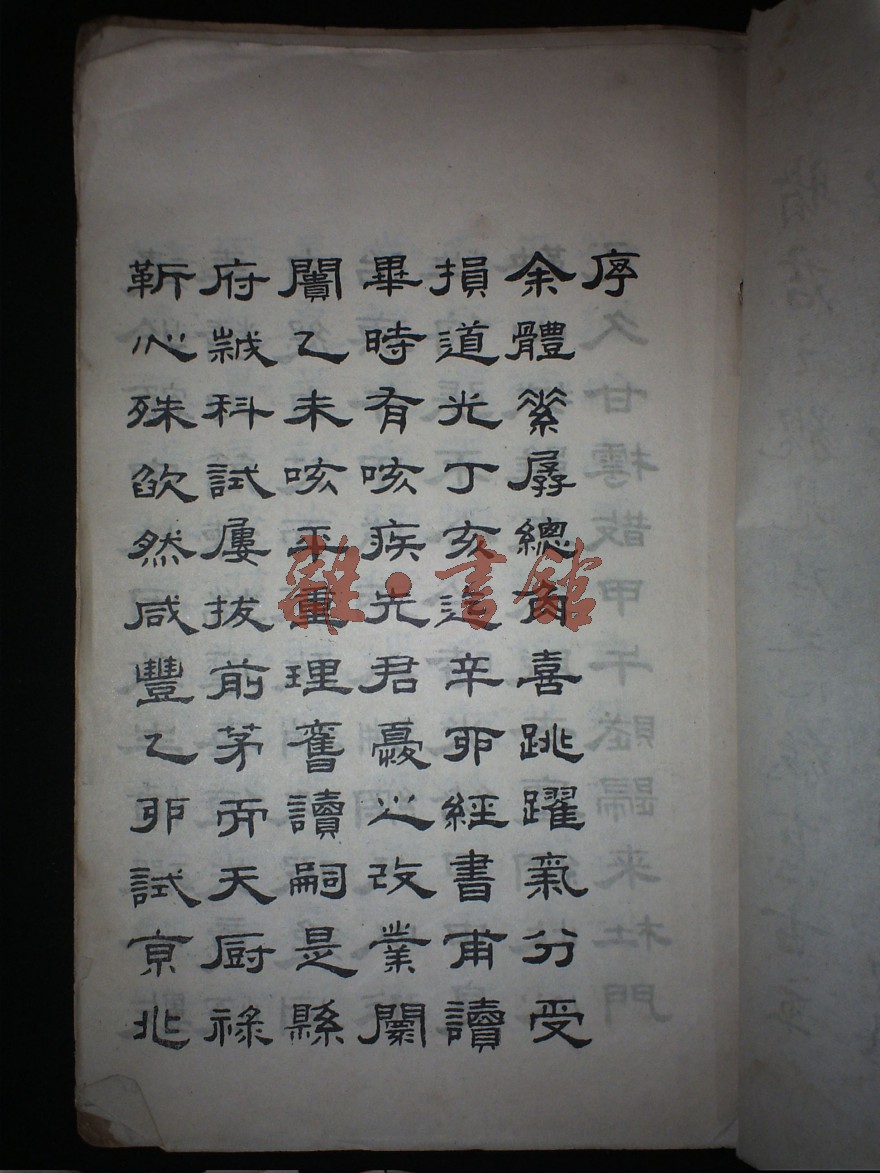 序
余體素孱總角喜跳躍氣分受
損道光丁亥迄辛卯經書甫讀
畢時有咳疾先君憂之改業闤
闠乙未咳平重理舊讀嗣是縣
府歲科試屢拔前茅而天厨祿
靳心殊欿然咸豐乙卯試京兆
雜·書館